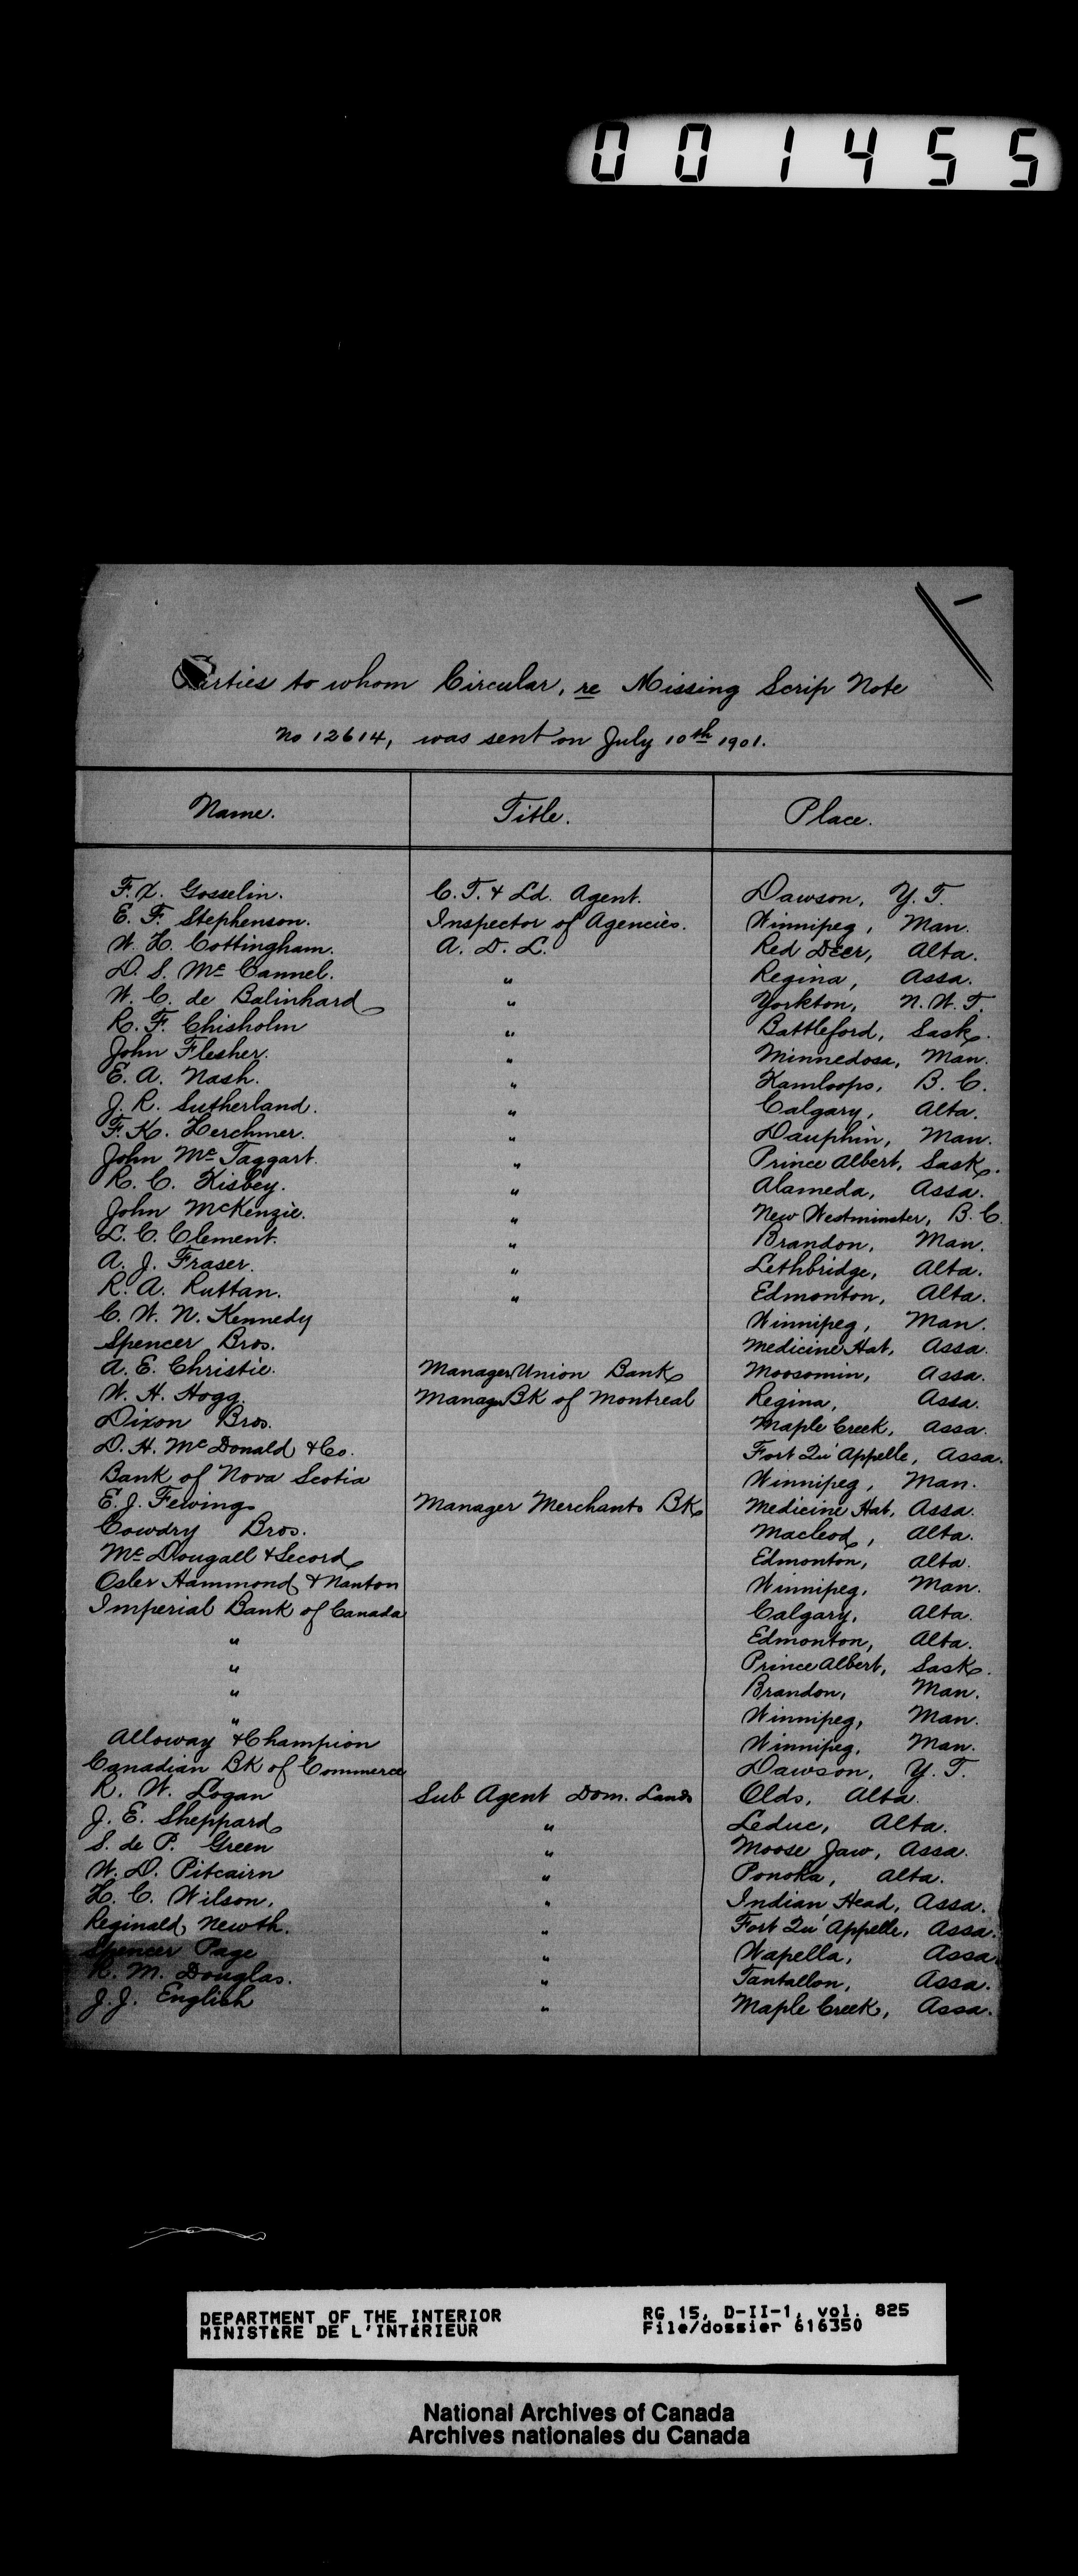 001455
Parties to whom Circular, re Missing Scrip Note
No 12614, was sent on July 10th 1901.
Name. Title. Place.
F. X. Gosselin. C. T. & Ld. Agent. Dawson, Y. T.
E. F. Stephenson. Inspector of Agencies. Winnipeg, Man.
W. H. Cottingham. A. D. L. Red Deer, Alta.
D. S. Mc Cannel. " Regina, Assa.
W. C. de Balinhard " Yorkton, N. W. T.
R. F. Chisholm " Battleford, Sask.
John Flesher. " Minnedosa, Man.
E. A. Nash. " Kamloops, B. C.
J. R. Sutherland. " Calgary, Alta.
F. K. Herchmer. " Dauphin, Man.
John Mc Taggart. " Prince Albert, Sask.
R. C. Kisbey. " Alameda, Assa.
John McKenzie. " New Westminster, B. C.
L. C. Clement. " Brandon, Man.
A. J. Fraser. " Lethbridge, Alta.
R. A. Ruttan. " Edmonton, Alta.
C. W. N. Kennedy Winnipeg, Man.
Spencer Bros. Medicine Hat, Assa.
A. E. Christie. Manager Union Bank Moosomin, Assa.
W. H. Hogg Manag Bk of Montreal Regina, Assa.
Dixon Bros. Maple Creek, Assa.
D. H. Mc Donald & Co. Fort Qu'Appelle, Assa.
Bank of Nova Scotia Winnipeg, Man.
E. J. Fewings Manager Merchants Bk Medicine Hat, Assa.
Cowdry Bros. Macleod, Alta.
Mc Dougall & Secord Edmonton, Alta.
Osler Hammond & Nanton Winnipeg, Man.
Imperial Bank of Canada Calgary, Alta.
" Edmonton, Alta.
" Prince Albert, Sask.
" Brandon, Man.
" Winnipeg, Man.
Alloway & Champion Winnipeg, Man.
Canadian Bk of Commerce Dawson, Y. T.
R. W. Logan Sub Agent Dom. Lands Olds, Alta.
J. E. Sheppard " Leduc, Alta.
S. de P. Green " Moose Jaw, Assa.
W. D. Pitcairn " Ponoka, Alta.
H. C. Wilson, " Indian Head, Assa.
Reginald Newth. " Fort Qu'Appelle, Assa.
Spencer Page " Wapella, Assa.
R. M. Douglas. " Tantallon, Assa.
J. J. English " Maple Creek, Assa.
DEPARTMENT OF THE INTERIOR RG 15, D-II-1, vol. 825
MINISTÈRE DE L'INTÉRIEUR File/dossier 616350
National Archives of Canada
Archives nationales du Canada